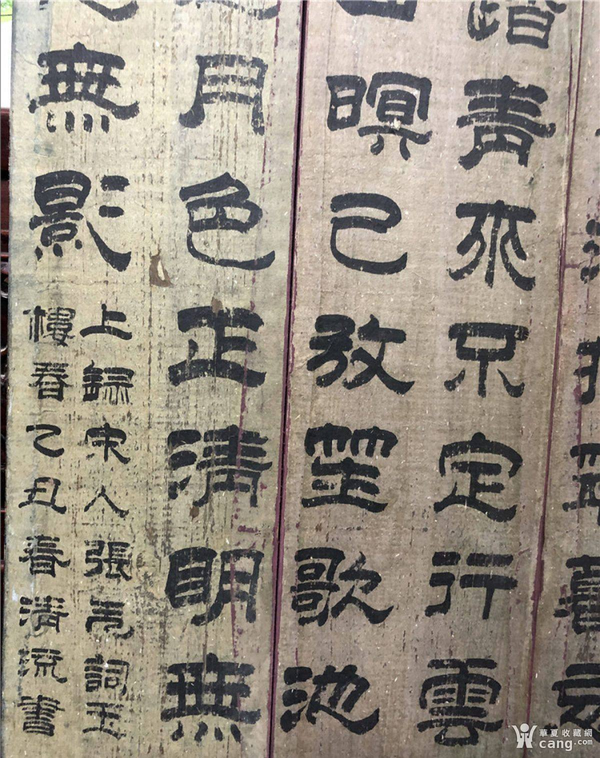 踏青來不定行雲
山暝已放笙歌池
月色正清明無
無影
上錄宋人張先詞玉
樓春乙丑春清流書
華夏收藏網
cang.com